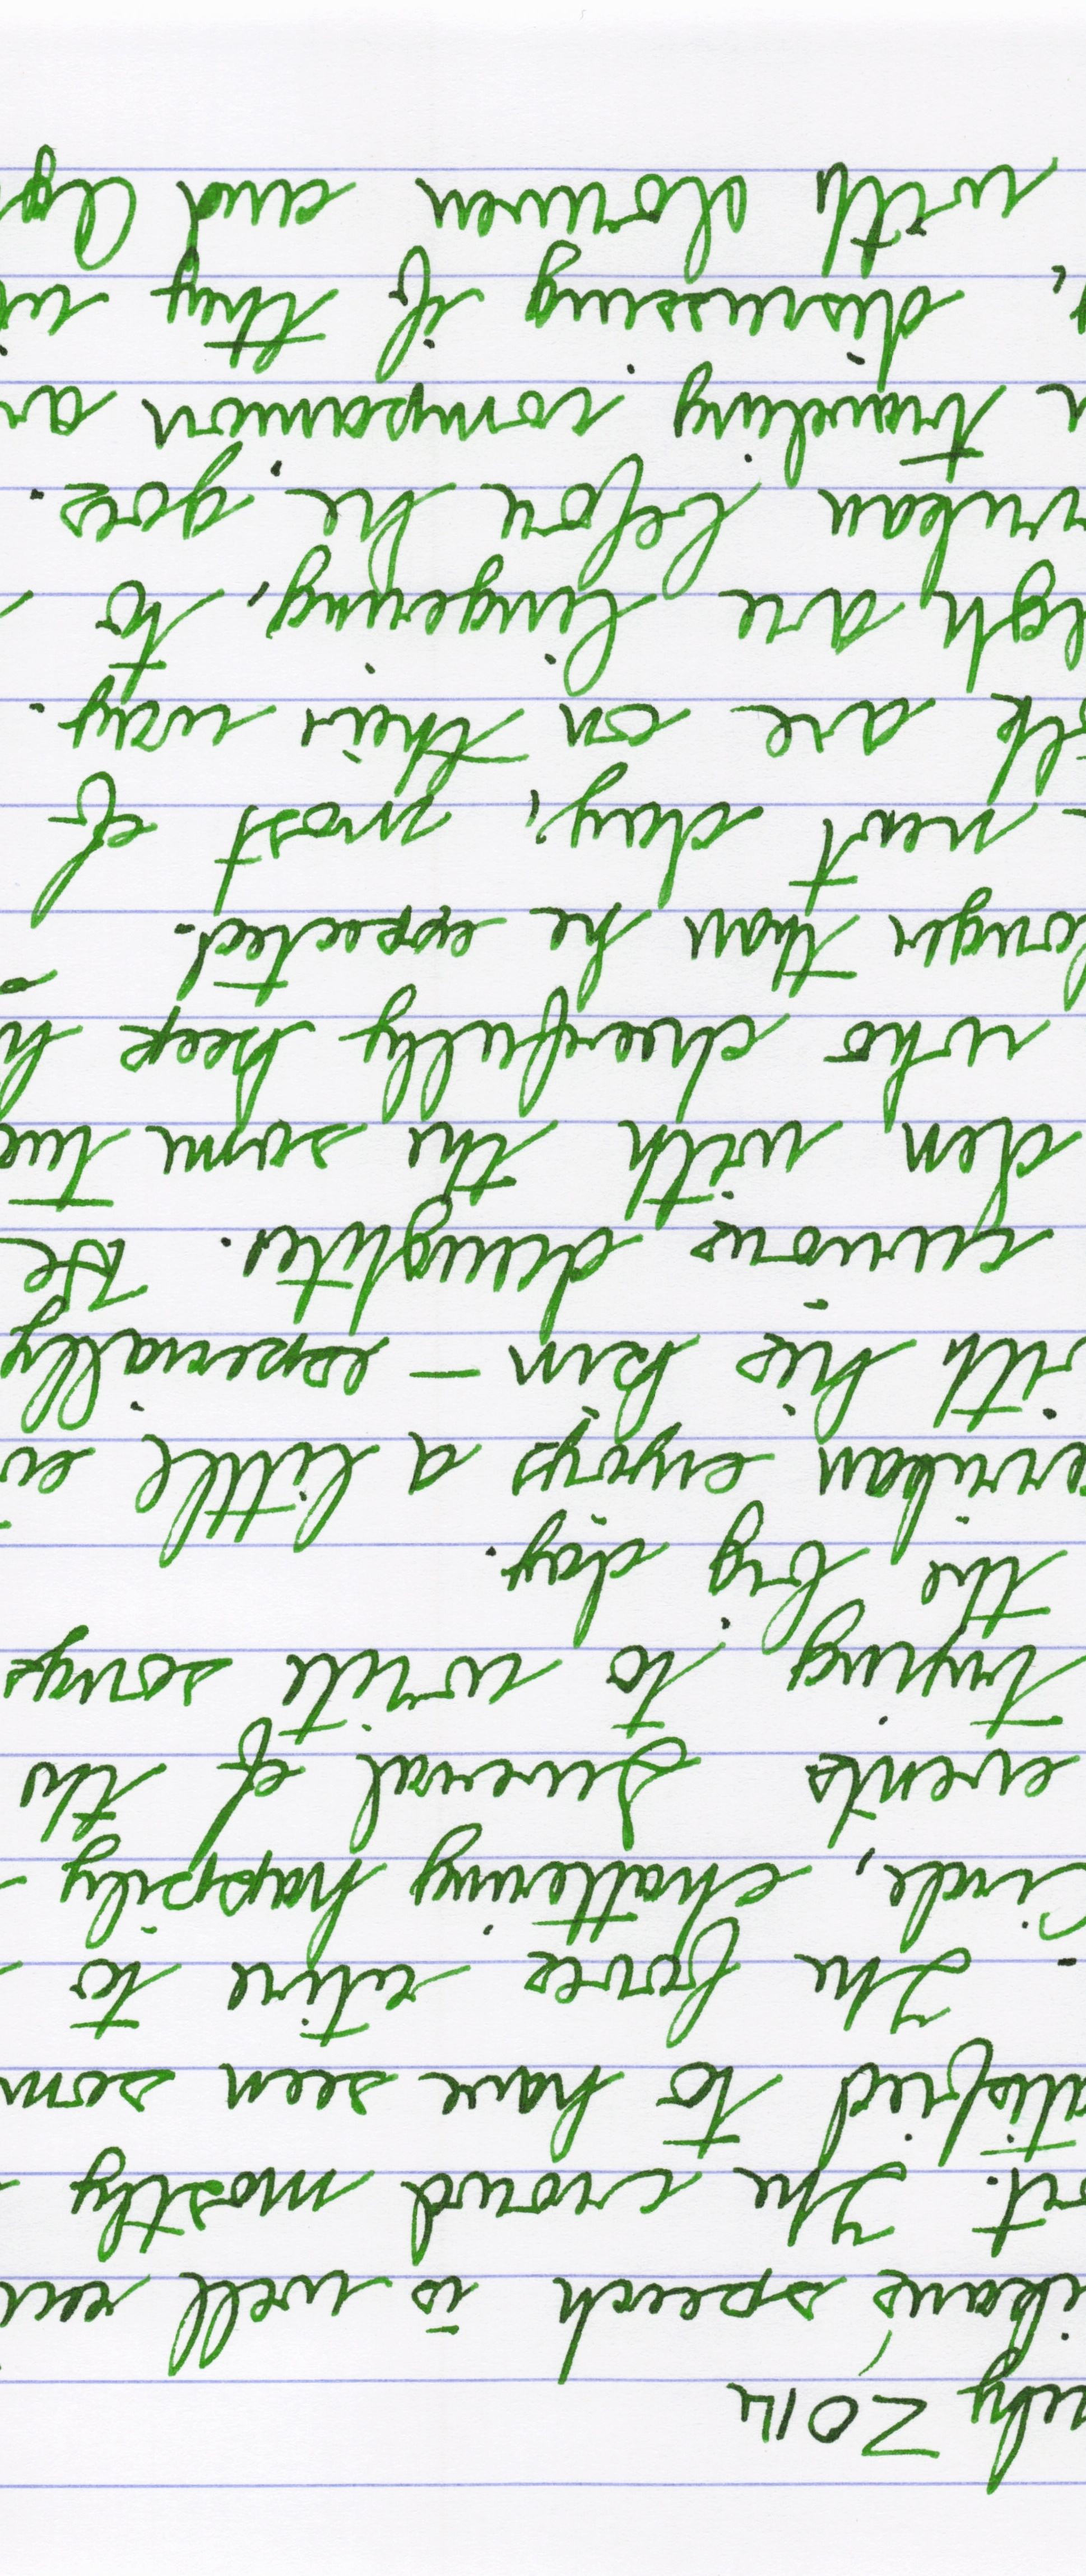 uly 2014
ikan's speech is well rec
rt. The crowd mostly
atisfied to have seen som
. The fores retire to
Circle, chattering happily
events Several of th
trying to write songs
the big day.
erukan enjoys a little
ith his kin – especially
curious daughter. He
den with the same
who cheerfully keep h
longer than he expected.
next day, most of
are on their way.
are lingering, to
rukan before he goes.
traveling companion ar
, discussing if they wi
with and